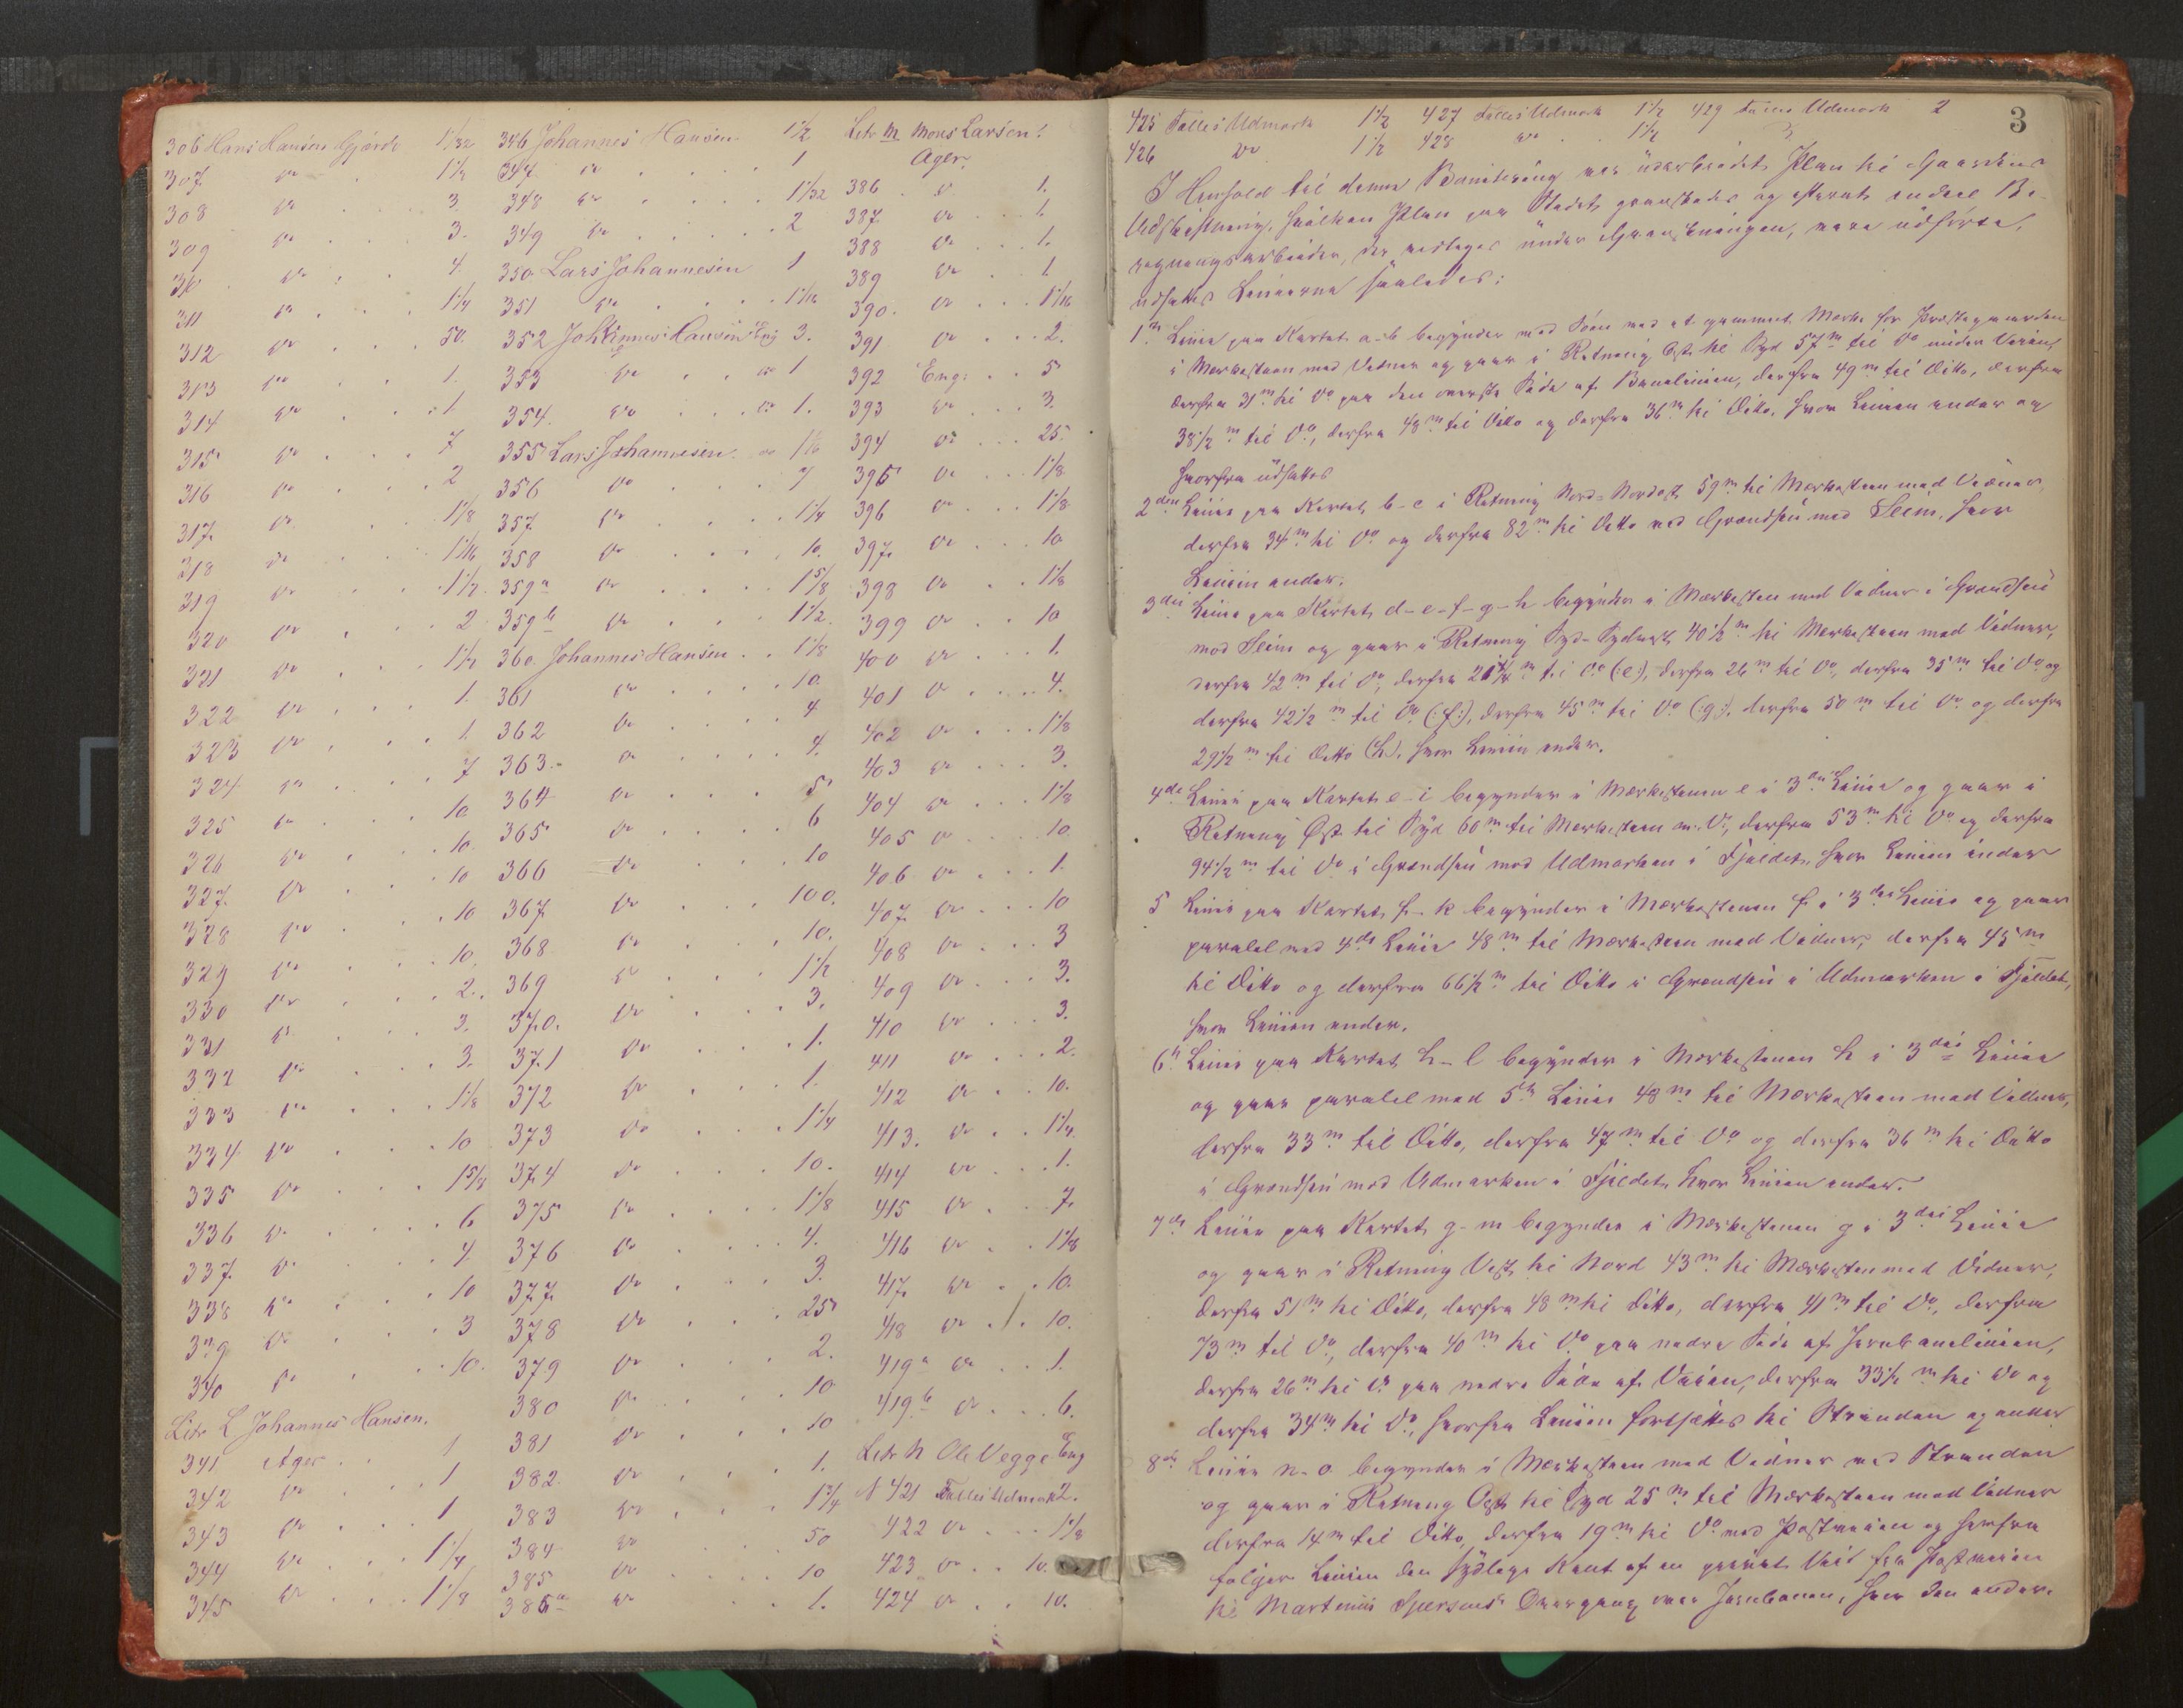 306 Hans Hansen Gjærde 1 1/32
307 do 1 1/2
308 do 3
309 do 3.
310 do 4
311 do 1 1/4
312 do 50.
313 do 1.
314 do 1.
315 do 7
316 do 2
317. do 1 1/8
318 do 1 1/16
319 do 1 1/2.
320 do 2
321 do 1 1/2
322 do 1.
323 do 1
324 do 7
325 do 10
326 do 10.
327. do 10
328 do 10
329 do 10.
330 do 2.
331 do 3.
332 do 3.
333 do 1 1/8
334 do 10
335 do 1 5/8
336 do 6
337. do 4
338 do 10
339. do 3
340 do 10.
Litr L Johannes Hansen.
341 Ager 1
342 do 1
343 do 1
344 do 1 1/4
345 do 1 1/8
346 Johannes Hansen 1 1/2
347. do 1
348 do 1 1/32
349 do 2
350. Lars Johannesen 1
351 do 1 1/16
352 Johannes Hansen Eng 3.
353 do do 1
354. do do 1.
355 Lars Johannesen do 1 1/16
356 do 7
357 do 1 1/4
358 do 10.
359 a do 1 5/8
359 b do 1 1/2.
360. Johannes Hansen 1 1/8
361 do 10
362 do 4
363. do 4.
364 do 5
365 do 6
366 do 10
367 do 100.
368 do 10.
369 do 1 1/2
370. do 3.
371 do 1.
372 do 1.
373 do 1 1/4
374 do 10.
375 do 1 1/8
376 do 4.
377. do 3.
378 do 25
379 do 2.
380 do 10
381 do 10
382. do 1.
383 do 1 3/4
384 do 50
385 do 10
386 a do 1.
Litr M Mons Larsen:
Ager
386 do 1.
387. do 1.
388 do 1.
389 do 1.
390. do 1 1/16
391 do 2.
392 Eng: 5
393 do 3.
394 do 25.
395 do 1 1/8
396 do 1 1/8
397. do 10
398 do 1 1/8
399 do 10
400 do 1.
401 do 4.
402 do 1 1/8
403 do 3.
404 do 1 1/8
405 do 10.
406 do 1.
407. do 10
408 do 3
409 do 3.
410 do 3.
411 do 2.
412 do 10.
413. do 1 1/4.
414 do 1.
415 do 7.
416 do 1 1/8
417. do 10.
418 do 10.
419 a do 1.
419 b do 6.
Litr N Ole Vegge Eng
N 421 Fælles Udmark 2.
422 do 1 1/2
423 do 10.
424 do 10.
3
425 Fælles Udmark 1 1/2 427 Fælles Udmark 1 1/2 429 Fælles Udmark 2
426 do 1 1/2 428 do 1 1/2
I Henhold til denne Bonitering var udarbeidet Plan til Gaardens
Udskiftning, hvilken Plan paa Stedet granskedes og efterat endeel Be-
regningsarbeider, der vedtoges under Granskningen, vare udførte,
udsattes Linierne saaledes:
1ste Linie paa Kartet a-b begynder ved Søen ved et gammelt Mærke for Præstegaarden
i Mærkesteen med Vidner og gaar i Retning Øst til Syd 57 m til Do under Veien,
derfra 31 m til Do paa den øverste Side af Banelinien, derfra 49 m til Ditto, derfra
38 1/2 m til Do, derfra 48 m til Ditto og derfra 36 m til Ditto, hvor Linien ender og
hvorfra udsattes
2den Linie paa Kartet b-c i Retning Nord-Nordost 59 m til Mærkesteen med Vidner,
derfra 34 m til Do og derfra 82 m til Ditto ved Grændsen med Seim, hvor
Linien ender.
3die Linie paa Kartet d-e-f-g-h begynder i Mærkesteen med Vidner i Grændsen
mod Seim og gaar i Retning Syd-Sydvest 40 1/2 m til Mærkesteen med Vidner,
derfra 42 m til Do, derfra 21 1/4 m til Do (:e:), derfra 26 m til Do, derfra 35 m til Do og
derfra 42 1/2 m til Do (:f:), derfra 45 m til Do (:g:), derfra 50 m til Do og derfra
29 1/2 m til Ditto (h), hvor Linien ender.
4de Linie paa Kartet e-i begynder i Mærkestenen e i 3die Linie og gaar i
Retning Øst til Syd 60 m til Mærkesteen m. V., derfra 53 m til Do og derfra
94 1/2 m til Do i Grændsen mod Udmarken i Fjeldet, hvor Linien ender
5 Linie paa Kartet f-k begynder i Mærkestenen f i 3die Linie og gaar
paralel med 4de Linie 48 m til Mærkesteen med Vidner, derfra 45 m
til Ditto og derfra 66 1/2 m til Ditto i Grændsen i Udmarken i Fjeldet,
hvor Linien ender.
6te Linie paa Kartet h-l begynder i Mærkestenen h i 3die Linie
og gaar paralel med 5te Linie 48 m til Mærkesteen med Vidner,
derfra 33 m til Ditto, derfra 47 m til Do og derfra 36 m til Ditto
i Grændsen mod Udmarken i Fjeldet, hvor Linien ender.
7de Linie paa Kartet g-m begynder i Mærkestenen g i 3die Linie
og gaar i Retning Vest til Nord 43 m til Mærkesten med Vidner,
derfra 51 m til Ditto, derfra 48 m til Ditto, derfra 41 m til Do, derfra
73 m til Do, derfra 40 m til Do paa nedre Side af Jernbanelinien,
derfra 26 m til Do paa nedre Side af Veien, derfra 33 1/2 m til Do og
derfra 34 m til Do, hvorfra Linien fortsættes til Stranden og ender
8de Linie n-o begynder i Mærkesteen med Vidner ved Stranden
og gaar i Retning Øst til Syd 25 m til Mærkesteen med Vidner
derfra 14 m til Ditto, derfra 19 m til Do ved Postveien og herfra
følger Linien den sydlige Kant af en Vei fra Postveien
til Martinus Overgang over Jernbanen, hvor den ender.